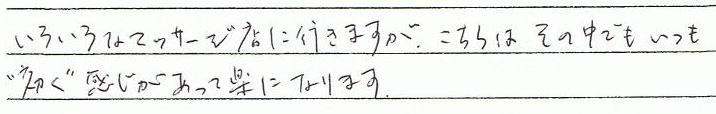 いろいろなマッサージ店に行きますが、こちらは その中でも いつも
"効く" 感じがあって楽になります.